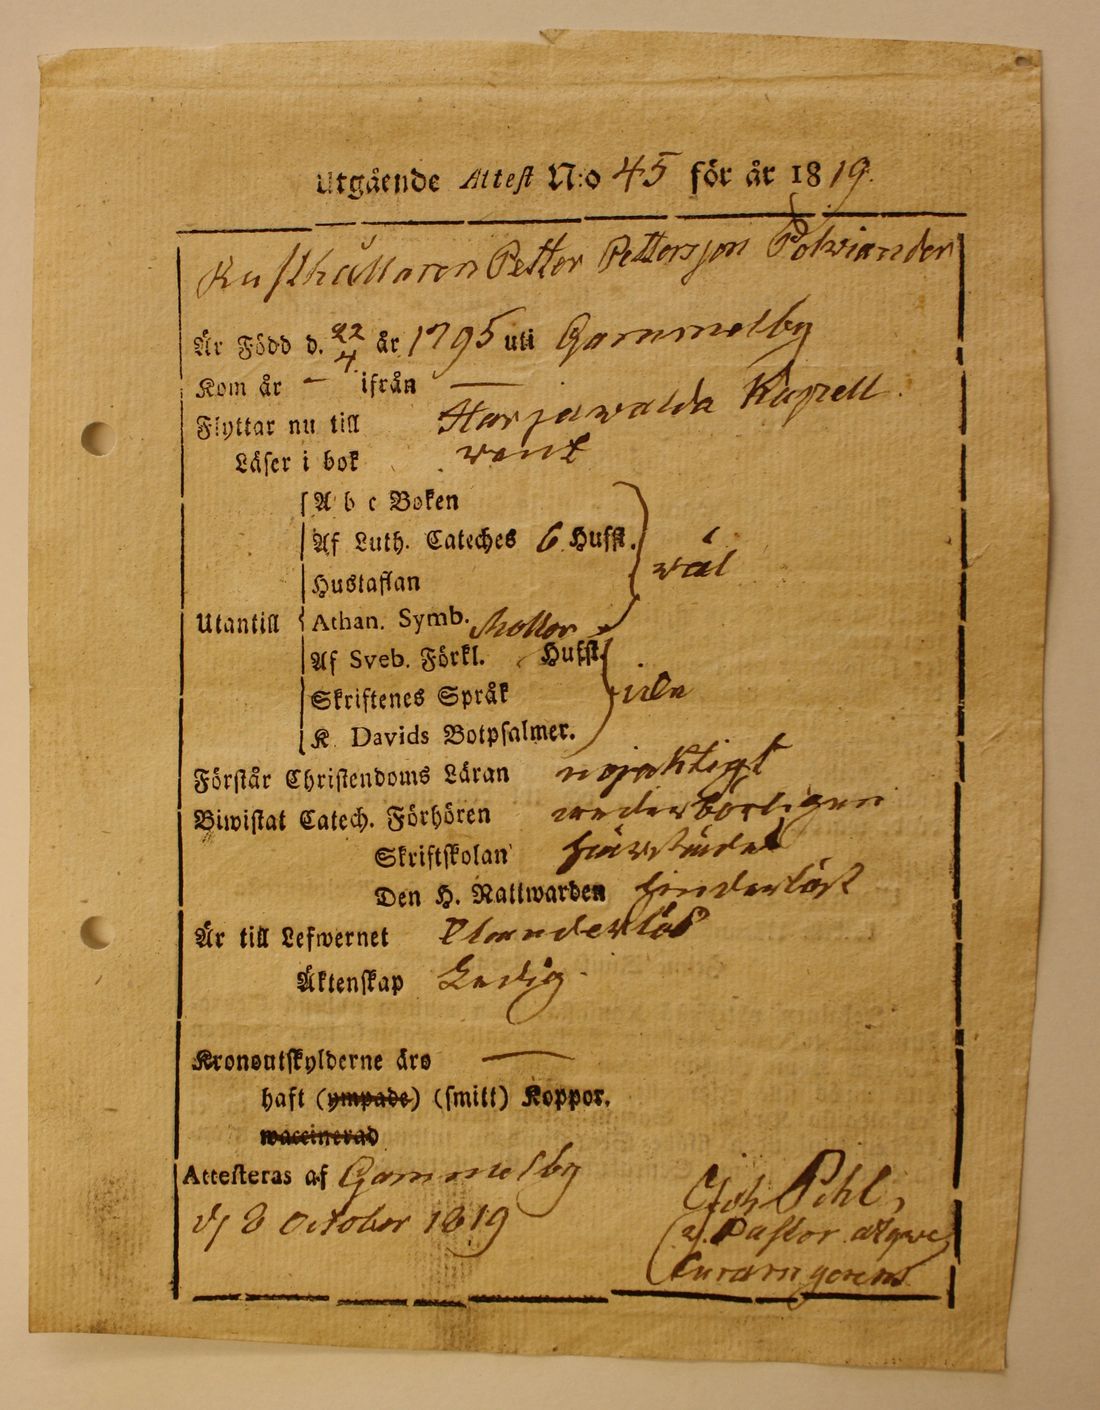 Utgående Attest N:o 45 för år 1819.
Rusthållaren Petter Pettersson Polviander
Är Född d. 22/4 år 1795 uti Gammelby
Kom år — ifrån —
Flyttar nu till Harjawalda Kapell.
Läser i bok rent
A b c Boken
Af Luth. Cateches 6 Hufst.
wäl
Hustaflan
Utantill Athan. Symb.
Af Sveb. Förkl. Hufst.
Skriftenes Språk
K. Davids Botpsalmer.
Förstår Christendoms Läran nöjaktigt
Biwistat Catech. Förhören wederbörligen
Skriftskolan härstädes
Den H. Nattwarden hinderlöst
Är till Lefwernet Klanderlös
Äktenskap Ledig.
Kronoutskylderne äro —
haft (ympade) (smitt) Koppor.
waccinerad
Attesteras af Gammelby
d. 8 October 1819
Joh. Pihl,
v. Pastor atque
Curam gerens